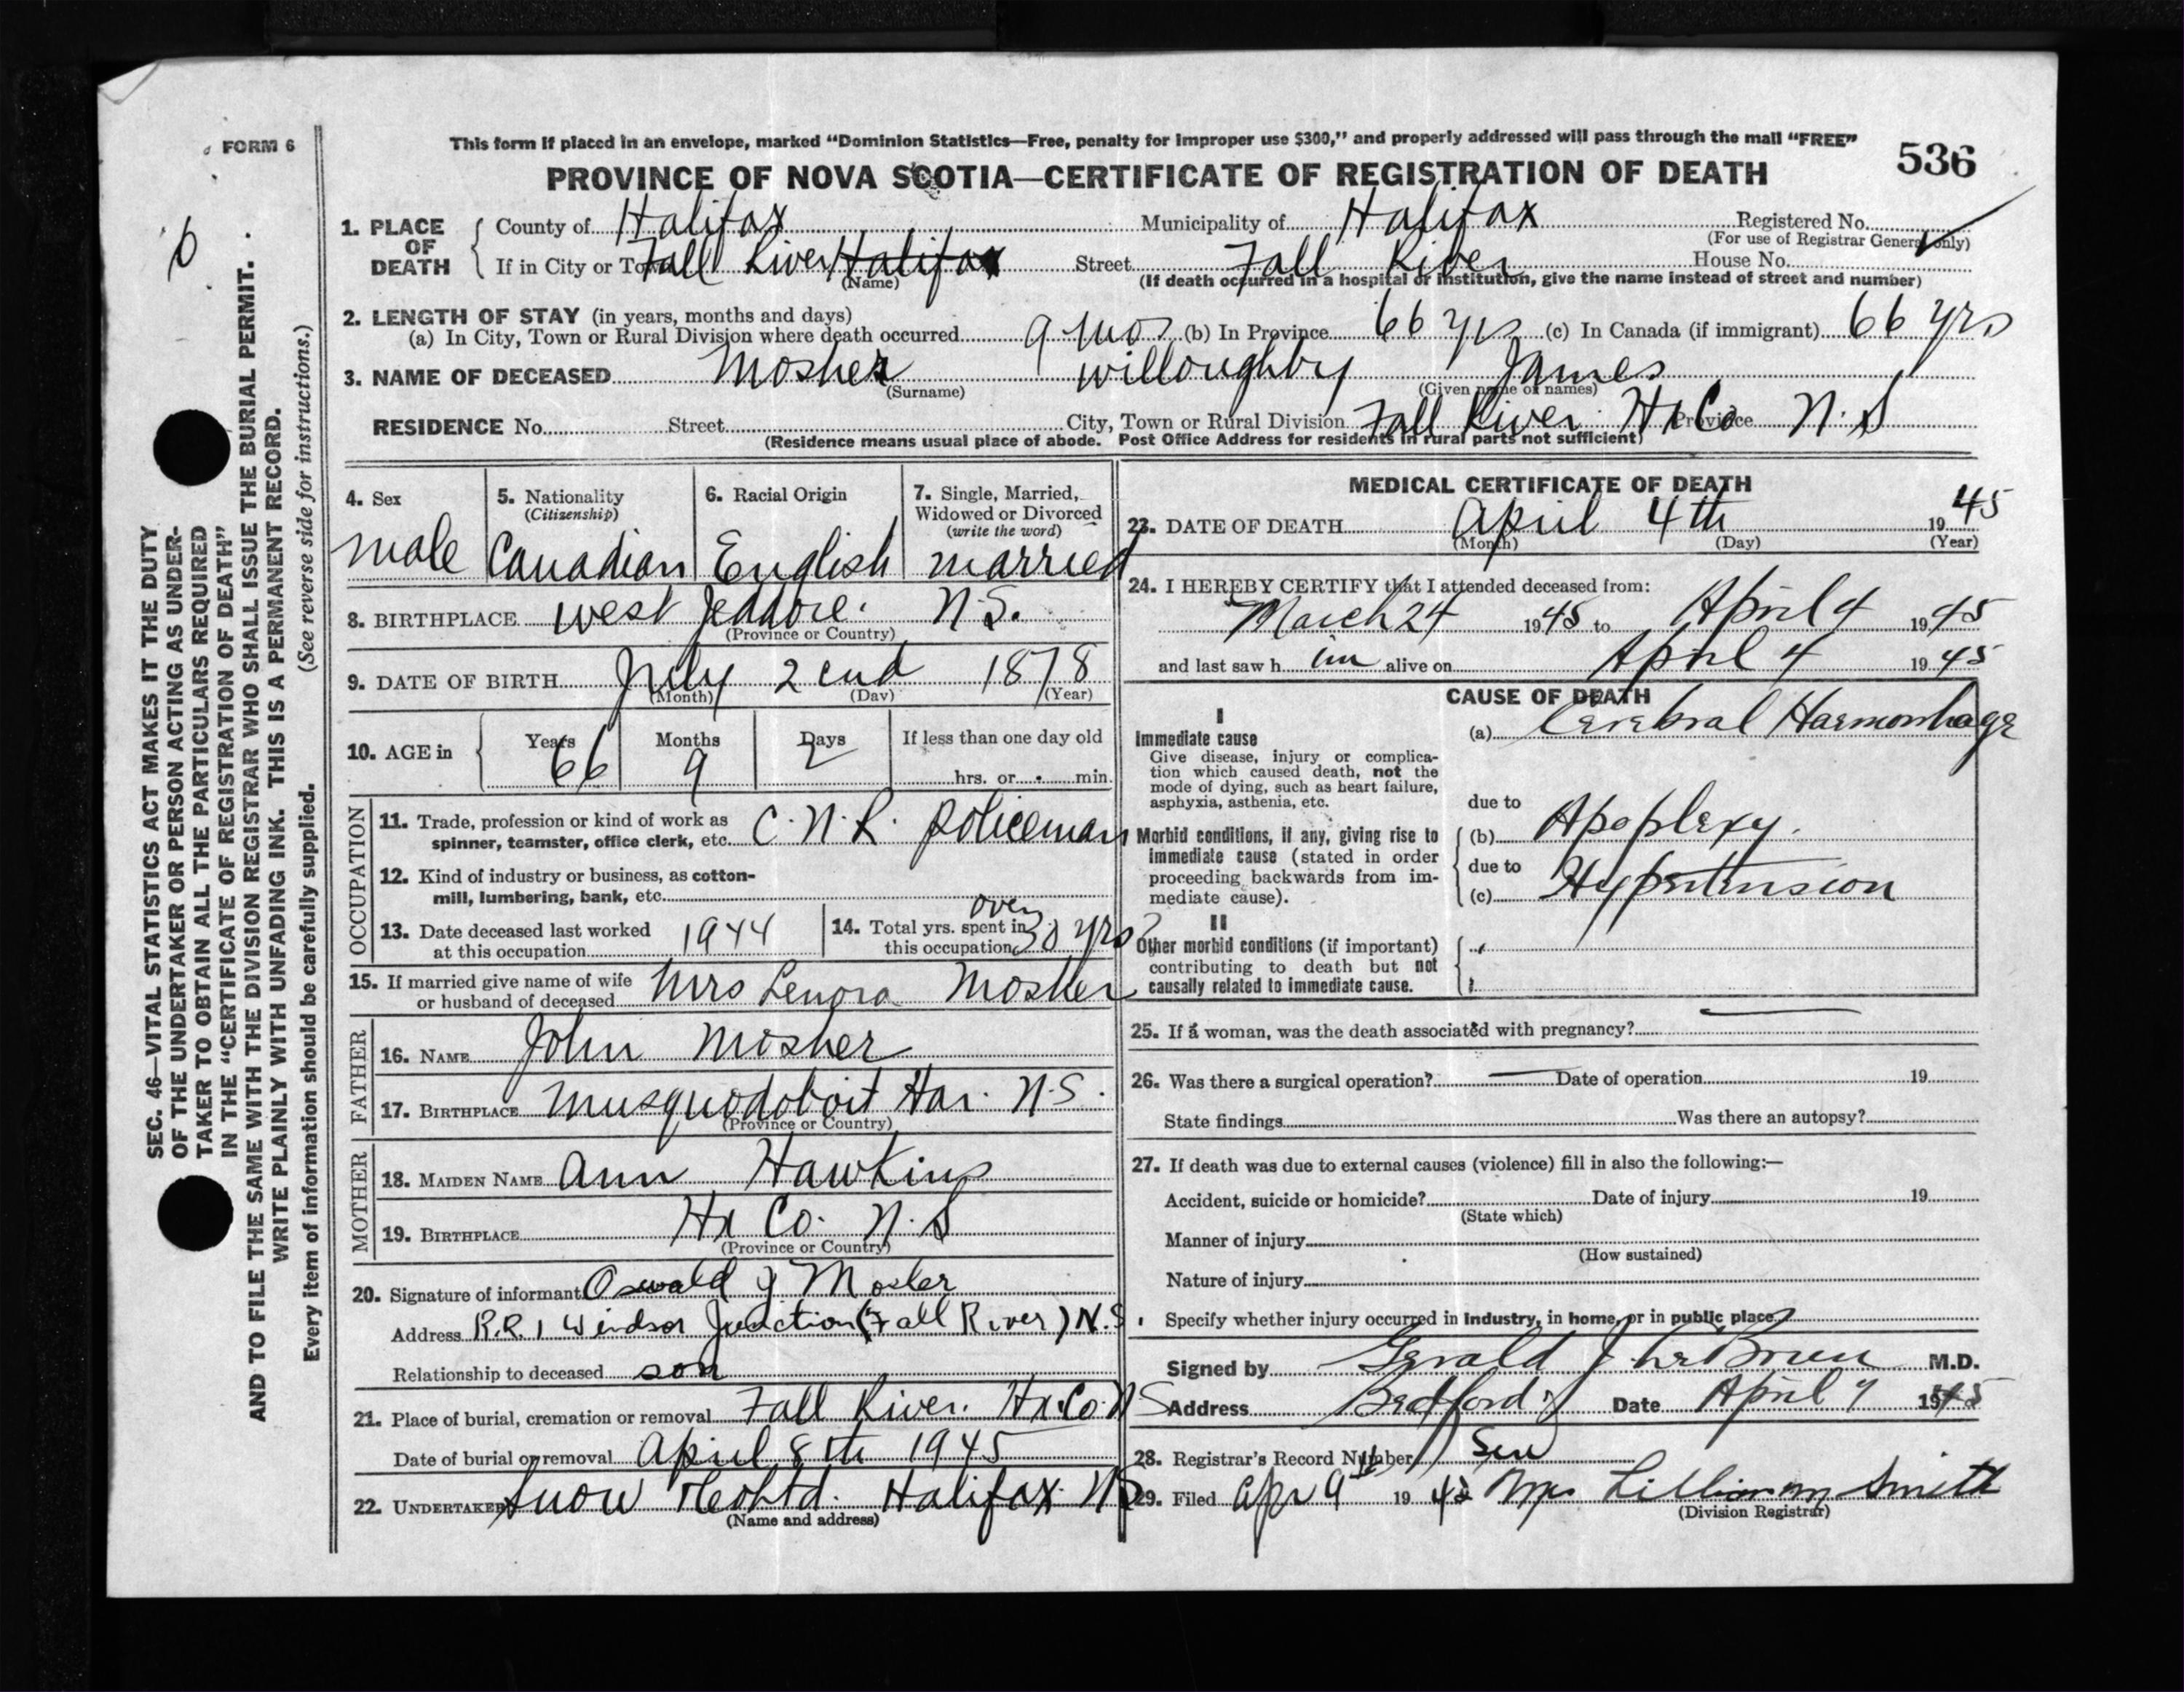 FORM 6
This form if placed in an envelope, marked “Dominion Statistics—Free, penalty for improper use $300,” and properly addressed will pass through the mail “FREE”
536
PROVINCE OF NOVA SCOTIA—CERTIFICATE OF REGISTRATION OF DEATH
1. PLACE OF DEATH
County of Halifax Municipality of Halifax Registered No.
(For use of Registrar General only)
If in City or Town Fall River Halifax Street Fall River House No.
(Name) (If death occurred in a hospital or institution, give the name instead of street and number)
2. LENGTH OF STAY (in years, months and days)
(a) In City, Town or Rural Division where death occurred 9 mos (b) In Province 66 yrs (c) In Canada (if immigrant) 66 yrs
3. NAME OF DECEASED Mosher willoughby James
(Surname) (Given name or names)
RESIDENCE No. Street City, Town or Rural Division Fall River Hx Co Province N.S
(Residence means usual place of abode. Post Office Address for residents in rural parts not sufficient)
4. Sex
male
5. Nationality
(Citizenship)
Canadian
6. Racial Origin
English
7. Single, Married,
Widowed or Divorced
(write the word)
married
8. BIRTHPLACE west Jeddore. N.S.
(Province or Country)
9. DATE OF BIRTH July 2end 1878
(Month) (Day) (Year)
10. AGE in Years Months Days If less than one day old
66 9 2 hrs. or min.
OCCUPATION
11. Trade, profession or kind of work as
spinner, teamster, office clerk, etc. C.N.R. policeman
12. Kind of industry or business, as cotton-
mill, lumbering, bank, etc.
13. Date deceased last worked
at this occupation 1944
14. Total yrs. spent in
this occupation over 30 yrs
15. If married give name of wife
or husband of deceased Mrs Lenora Mosher
FATHER
16. NAME John Mosher
17. BIRTHPLACE Musquodoboit Har. N.S.
(Province or Country)
MOTHER
18. MAIDEN NAME Ann Hawkins
19. BIRTHPLACE Hx Co. N.S
(Province or Country)
20. Signature of informant Oswald J Mosher
Address R.R. 1 Windsor Junction (Fall River) N.S.
Relationship to deceased son
21. Place of burial, cremation or removal Fall River. Hx.Co. N S
Date of burial or removal April 8th 1945
22. UNDERTAKER Snow & Co Ltd. Halifax N S
(Name and address)
MEDICAL CERTIFICATE OF DEATH
23. DATE OF DEATH April 4th 1945
(Month) (Day) (Year)
24. I HEREBY CERTIFY that I attended deceased from:
March 24 1945 to April 4 1945
and last saw h im alive on April 4 1945
CAUSE OF DEATH
I
Immediate cause
Give disease, injury or complica-
tion which caused death, not the
mode of dying, such as heart failure,
asphyxia, asthenia, etc.
(a) Cerebral Haemorrhage
due to
Morbid conditions, if any, giving rise to
immediate cause (stated in order
proceeding backwards from im-
mediate cause).
(b) Apoplexy.
due to
(c) Hypertension
II
Other morbid conditions (if important)
contributing to death but not
causally related to immediate cause.
25. If a woman, was the death associated with pregnancy? —
26. Was there a surgical operation? — Date of operation 19
State findings Was there an autopsy?
27. If death was due to external causes (violence) fill in also the following:—
Accident, suicide or homicide? Date of injury 19
(State which)
Manner of injury
(How sustained)
Nature of injury
Specify whether injury occurred in industry, in home, or in public place?
Signed by Gerald J M.D.
Address Bedford Date April 7 1945
28. Registrar's Record Number
29. Filed Apr 9th 19 45 Mrs Lillian M Smith
(Division Registrar)
SEC. 46—VITAL STATISTICS ACT MAKES IT THE DUTY
OF THE UNDERTAKER OR PERSON ACTING AS UNDER-
TAKER TO OBTAIN ALL THE PARTICULARS REQUIRED
IN THE “CERTIFICATE OF REGISTRATION OF DEATH”
AND TO FILE THE SAME WITH THE DIVISION REGISTRAR WHO SHALL ISSUE THE BURIAL PERMIT.
WRITE PLAINLY WITH UNFADING INK. THIS IS A PERMANENT RECORD.
(See reverse side for instructions.)
Every item of information should be carefully supplied.